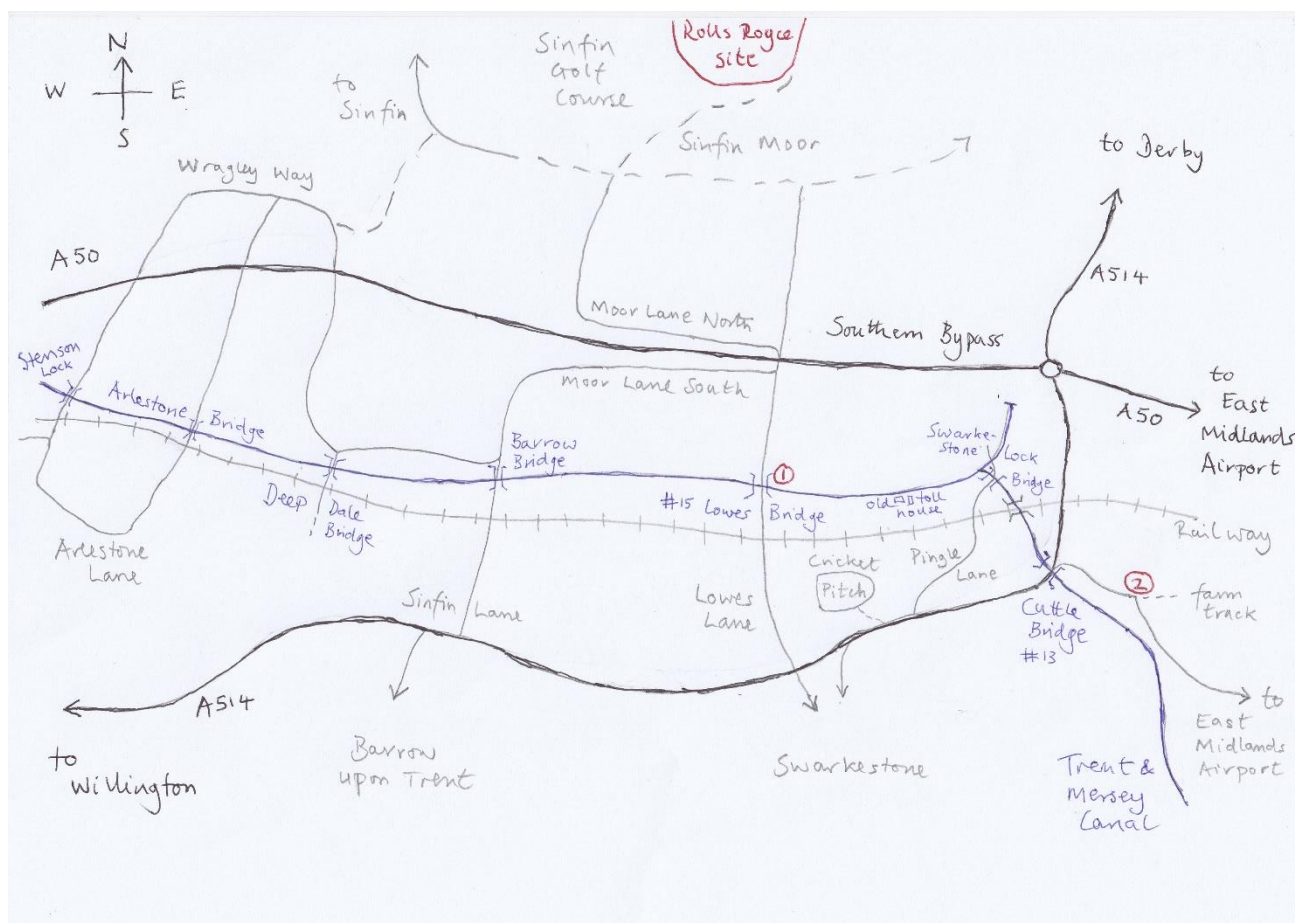 N
W
E
S
to
Sinfin
Sinfin
Golf
Course
Rolls Royce
site
Sinfin Moor
to Derby
Wragley Way
A50
A514
Moor Lane North
Southern Bypass
Moor Lane South
to
East
Midlands
Airport
A50
Stenson
Lock
Arlestone Bridge
Barrow
Bridge
Swarke-
stone Lock
Bridge
Deep Dale
Bridge
#15 Lowes Bridge
1
old toll
house
Railway
Arlestone
Lane
Cricket
Pitch
Pingle
Lane
2
farm
track
Sinfin Lane
Lowes
Lane
Cuttle
Bridge
#13
A514
to
Willington
Barrow
upon Trent
Swarkestone
to
East
Midlands
Airport
Trent &
Mersey
Canal